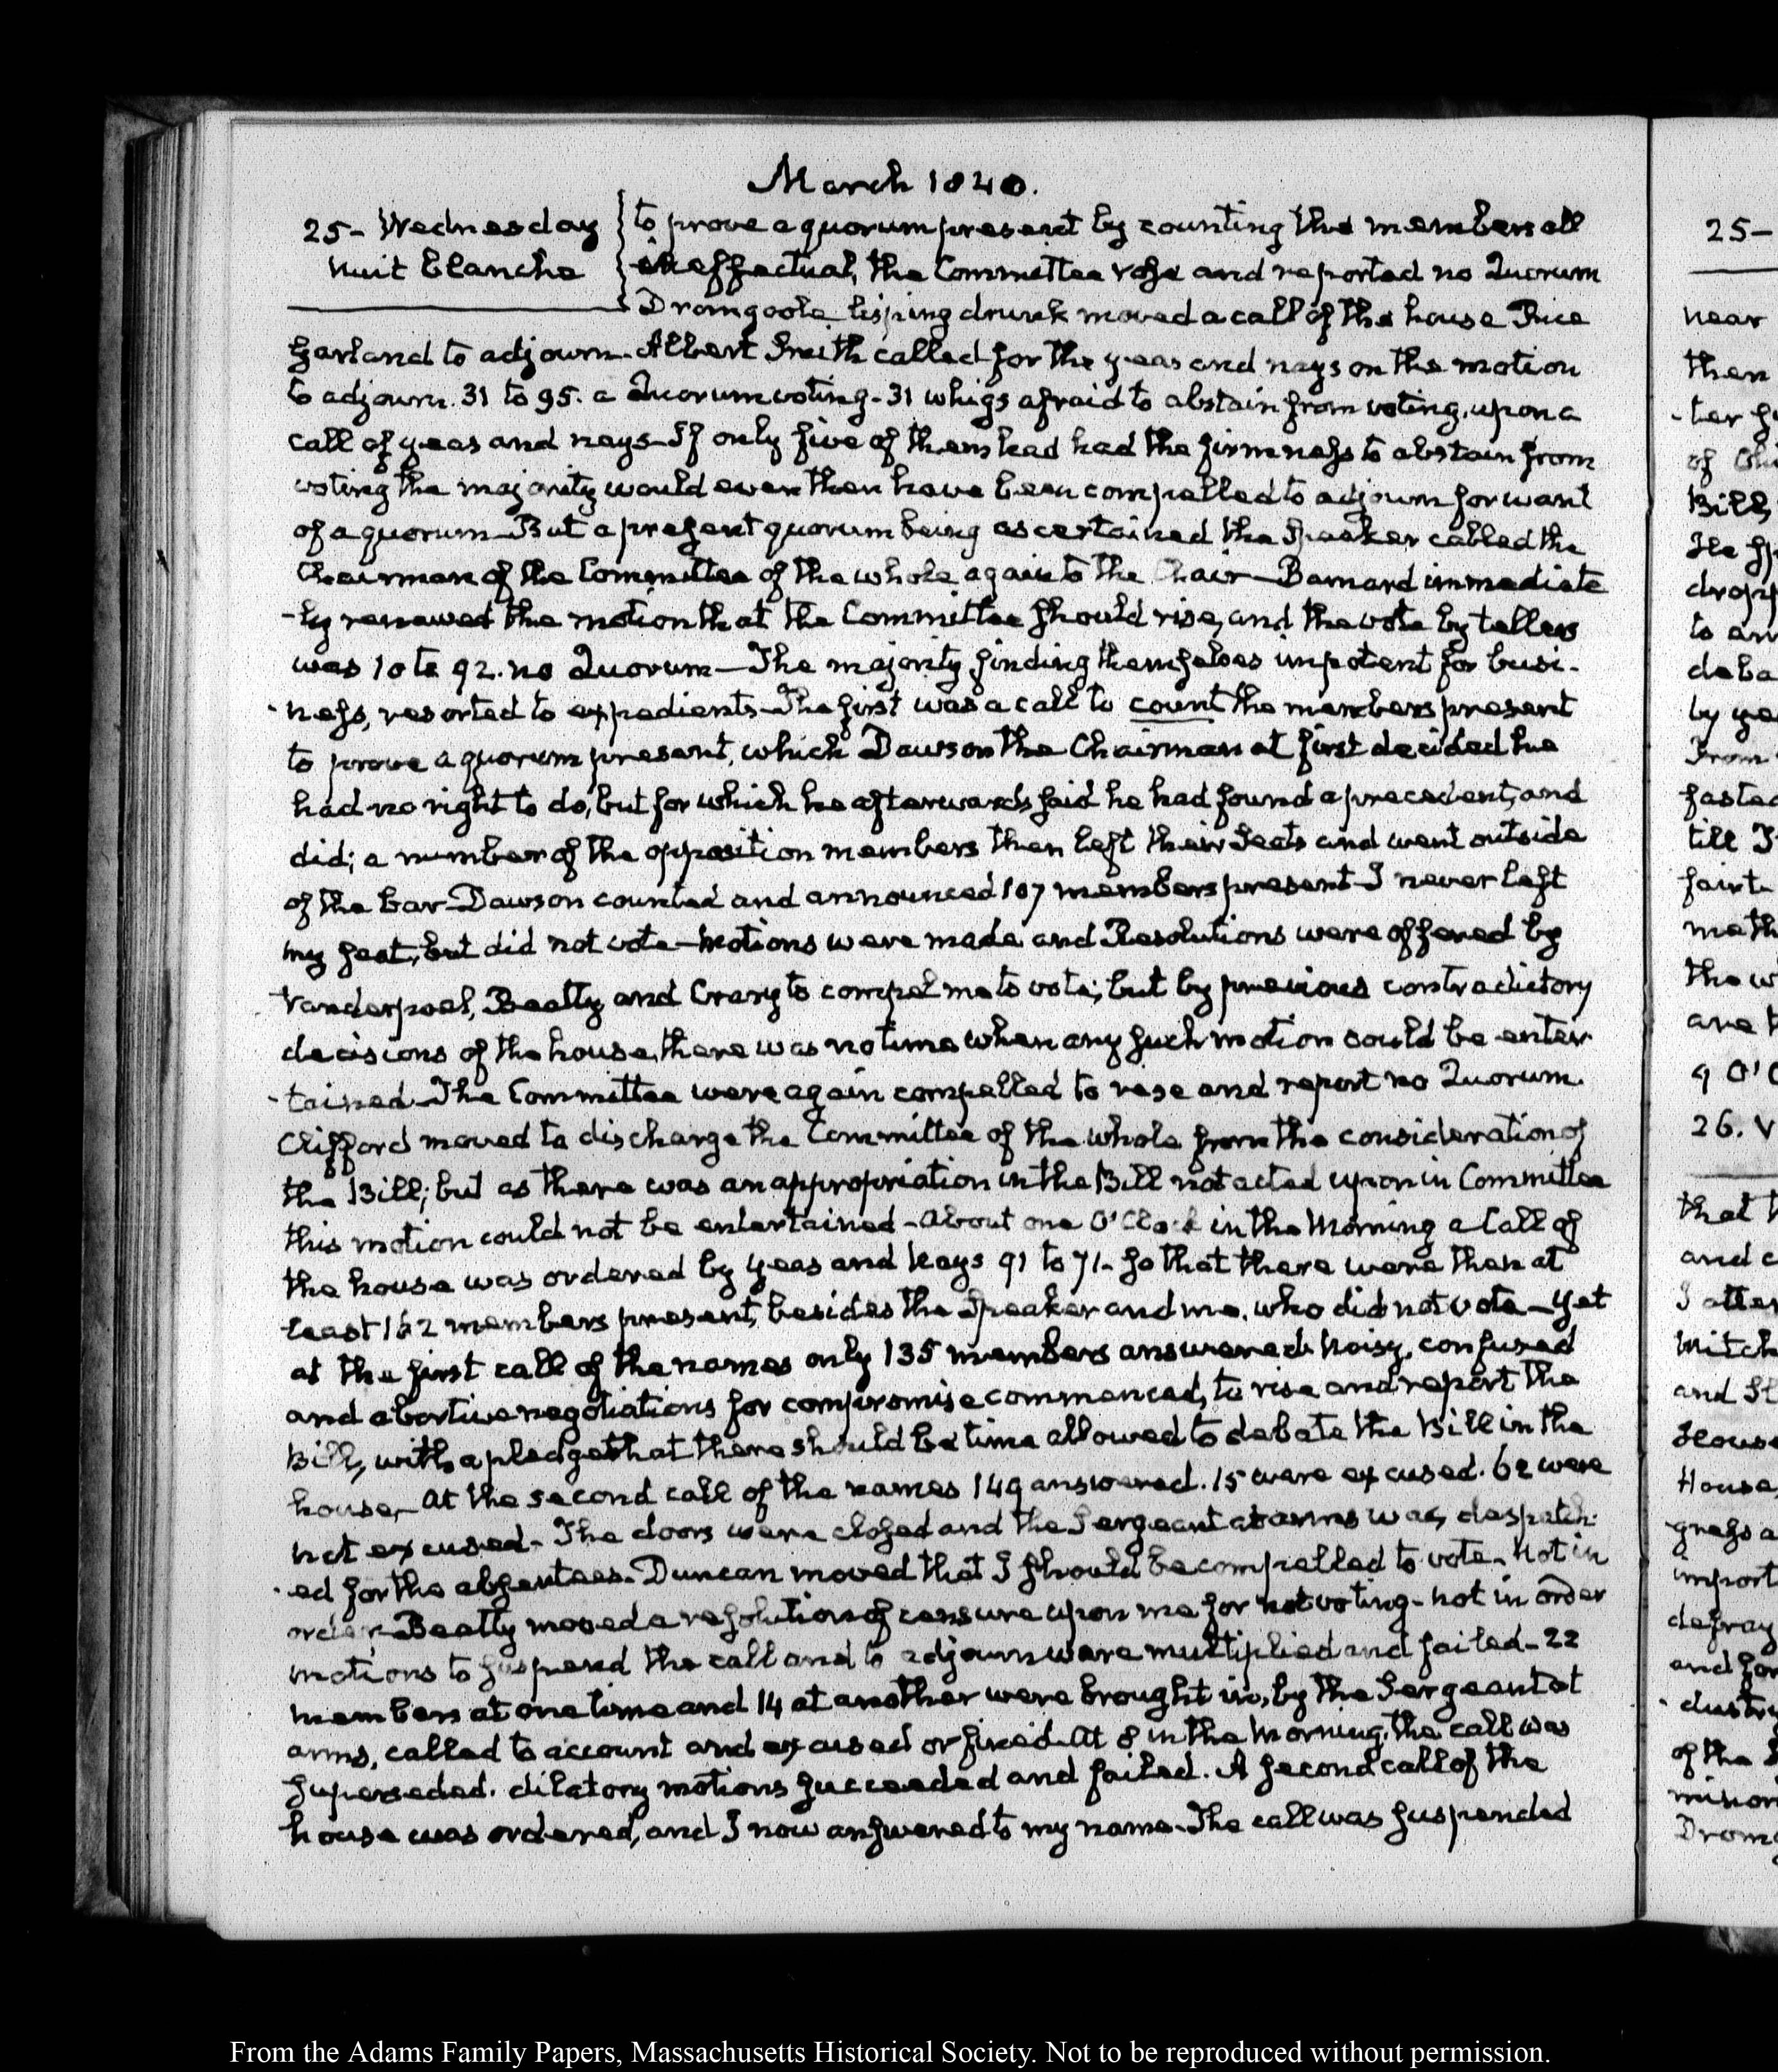 March 1840.
25- Wednesday
Nuit blanche
to prove a quorum present by counting the members all
ineffectual, the Committee rose and reported no Quorum
Dromgoole lisping drunk moved a call of the house Rice
Garland to adjourn. Albert Smith called for the yeas and nays on the motion
to adjourn. 31 to 95. a Quorum voting- 31 whigs afraid to abstain from voting, upon a
call of yeas and nays- If only five of them had had the firmness to abstain from
voting the majority would even then have been compelled to adjourn for want
of a quorum- But a present quorum being ascertained the Speaker called the
Chairman of the Committee of the whole again to the Chair- Barnard immediate
-ly renewed the motion that the Committee should rise, and the vote by tellers
was 10 to 92. no Quorum- The majority finding themselves impotent for busi-
-ness, resorted to expedients- The first was a call to count the members present
to prove a quorum present, which Dawson the Chairman at first decided he
had no right to do, but for which he afterwards said he had found a precedent, and
did; a number of the opposition members then left their seats and went outside
of the bar- Dawson counted and announced 107 members present- I never left
my seat, but did not vote- Motions were made and Resolutions were offered by
Vanderpoel, Beatty and Crary to compel me to vote; but by previous contradictory
decisions of the house, there was no time when any such motion could be enter-
-tained- The Committee were again compelled to rise and report no Quorum.
Clifford moved to discharge the Committee of the whole from the consideration of
the Bill; but as there was an appropriation in the Bill not acted upon in Committee
this motion could not be entertained- About one O'Clock in the Morning a Call of
the house was ordered by yeas and Nays 91 to 71- so that there were then at
least 162 members present, besides the Speaker and me, who did not vote- yet
at the first call of the names only 135 members answered. Noisy, confused
and abortive negotiations for compromise commenced, to rise and report the
Bill, with a pledge that there should be time allowed to debate the Bill in the
house- At the second call of the names 149 answered. 15 were excused. 62 were
not excused- The doors were closed and the Sergeant at arms was despatch-
-ed for the absentees. Duncan moved that I should be compelled to vote- Not in
order- Beatty moved a resolution of censure upon me for not voting- not in order
motions to suspend the call and to adjourn were multiplied and failed- 22
members at one time and 14 at another were brought in, by the Sergeant at
arms, called to account and excused or fined. At 8 in the Morning, the call was
superseded. dilatory motions succeeded and failed. A second call of the
house was ordered, and I now answered to my name- The call was suspended
25-
near
then
of
Bill,
to
by
From
till
faint
the
are
26.
that
and
and
House
House,
import
defray
of the
From the Adams Family Papers, Massachusetts Historical Society. Not to be reproduced without permission.